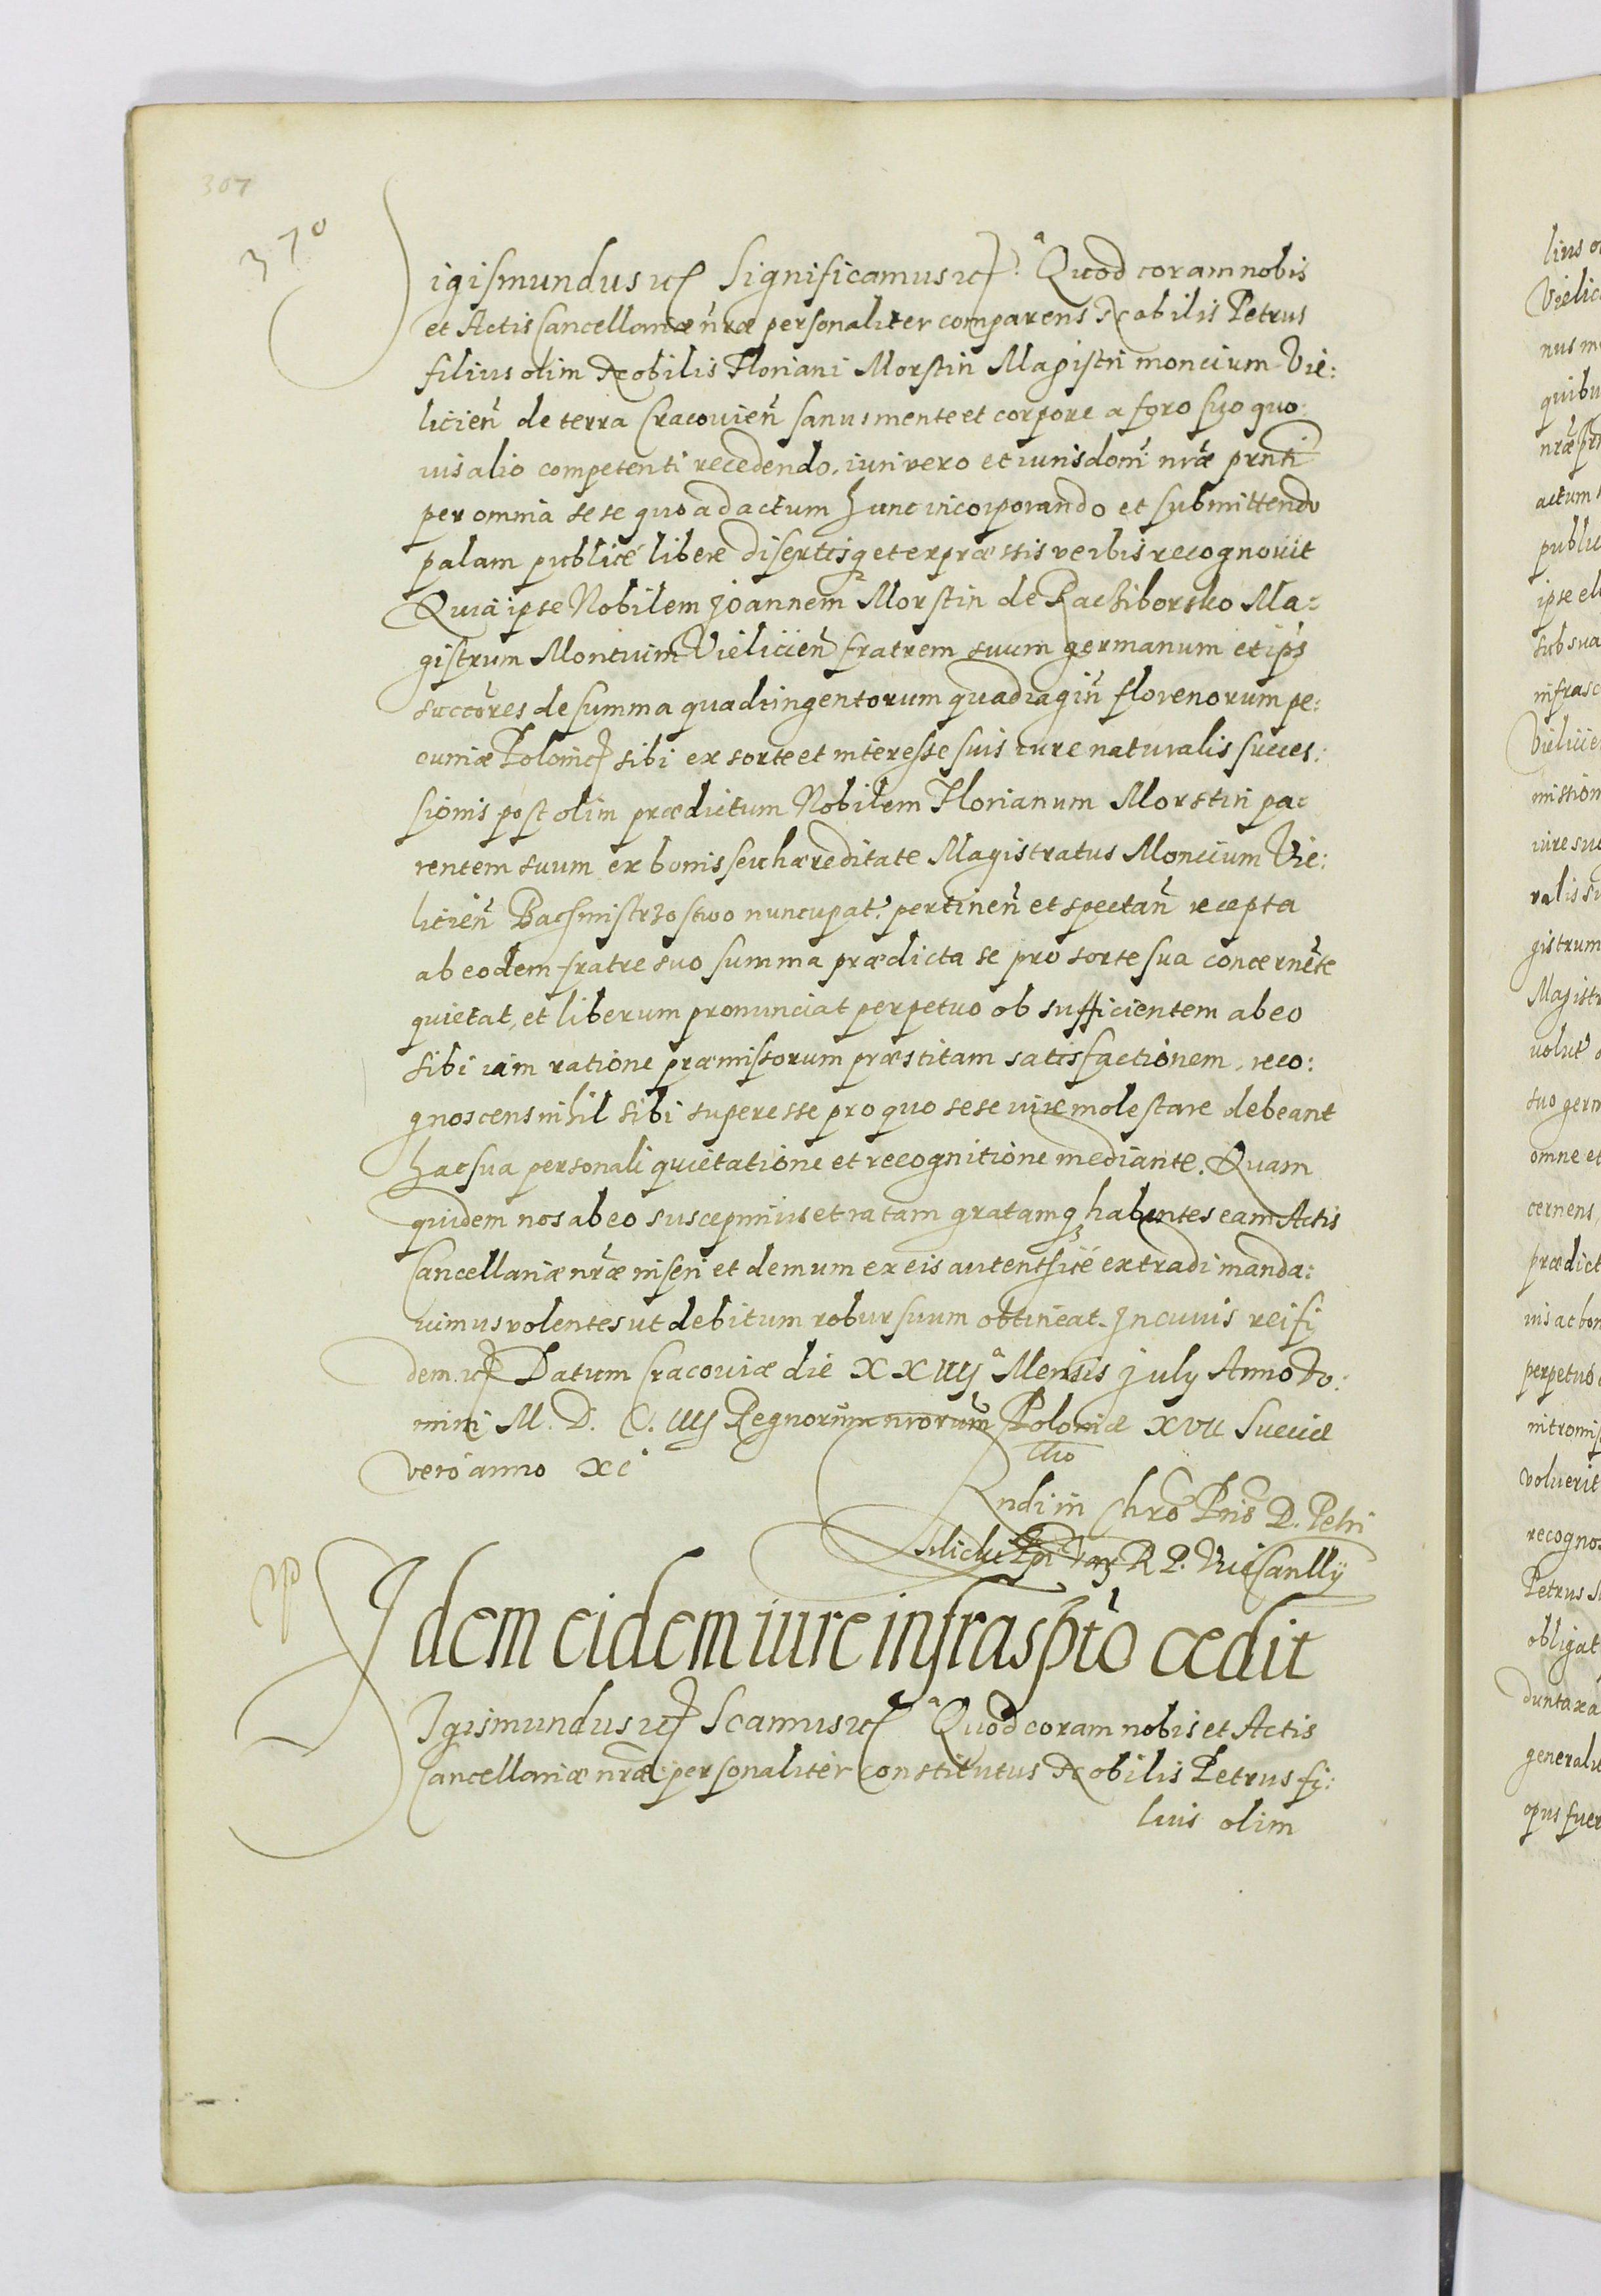 307
370
Sigismundus etc Significamus etc. Quod coram nobis
et Actis Cancellariæ nr̃æ personaliter comparens Nobilis Petrus
filius olim Nobilis Floriani Morstin Magistri moncium Vie:
licień de terra Cracovień sanus mente et corpore a foro suo quo
vis alio competenti recedendo, iuri vero et iurisdoni nr̃æ prnti
per omnia sese quo ad actum hunc incorporando et submittendo
palam publicé libere disertisq et expræssis verbis recognovit
Quia ipse Nobilem Joannem Morstin de Rachiborsko Ma:
gistrum Montium Vielicień fratrem suum germanum et ips
succores de summa quadringentorum quadragiń florenorum pe:
cuniæ Polonic sibi ex sorte et interesse suis iure naturalis succes:
sionis post olim prædictum Nobilem Florianum Morstin pa:
rentem suum ex bonis seu hæreditate Magistratus Moncium Vie:
licień Bachmistrzostwo nuncupat. pertineń et spectań recepta
ab eodem fratre suo summa prædicta se pro sorte sua concernēte
quietat, et liberum pronunciat perpetuo ob sufficientem ab eo
sibi iam ratione præmissorum præstitam satisfactionem, reco:
gnoscens nihil sibi superesse pro quo sese iure molestare debeant
hac sua personali quietatione et recognitione mediante. Quam
quidem nos ab eo suscepimus et ratam gratamq habentes eam Actis
Cancellariæ nr̃æ inseri et demum ex eis autenthicé extradi manda:
vimus volentes ut debitum robur suum obtineat. In cuius rei fi
dem etc Datum Cracoviæ die XXIIIJ Mensis July Anno Do:
mini M. D. C. IIIJ Regnorum nrorum Poloniæ XVII Sueciæ
vero anno XI
Rndi in Chro Pris D. Petri
Tilicki Epi R P. ViceCanllÿ
Idem eidem iure infraspto cedit
Sigismundus etc Scamus etc Quod coram nobis et Actis
Cancellariæ nr̃æ personaliter constitutus Nobilis Petrus fi:
lius olim
Vielic
nus m
quibu
actum
public
ipse el
sub sua
infrasc
Vielicie
mission
iure su
ralis su
gistrum
Magistr
volut
suo germ
omne et
cernens,
prædict
iris ac bon
perpetuo
intromis
voluerit
recognos
Petrus s
obligat
duntaxa
generali
opus fuer